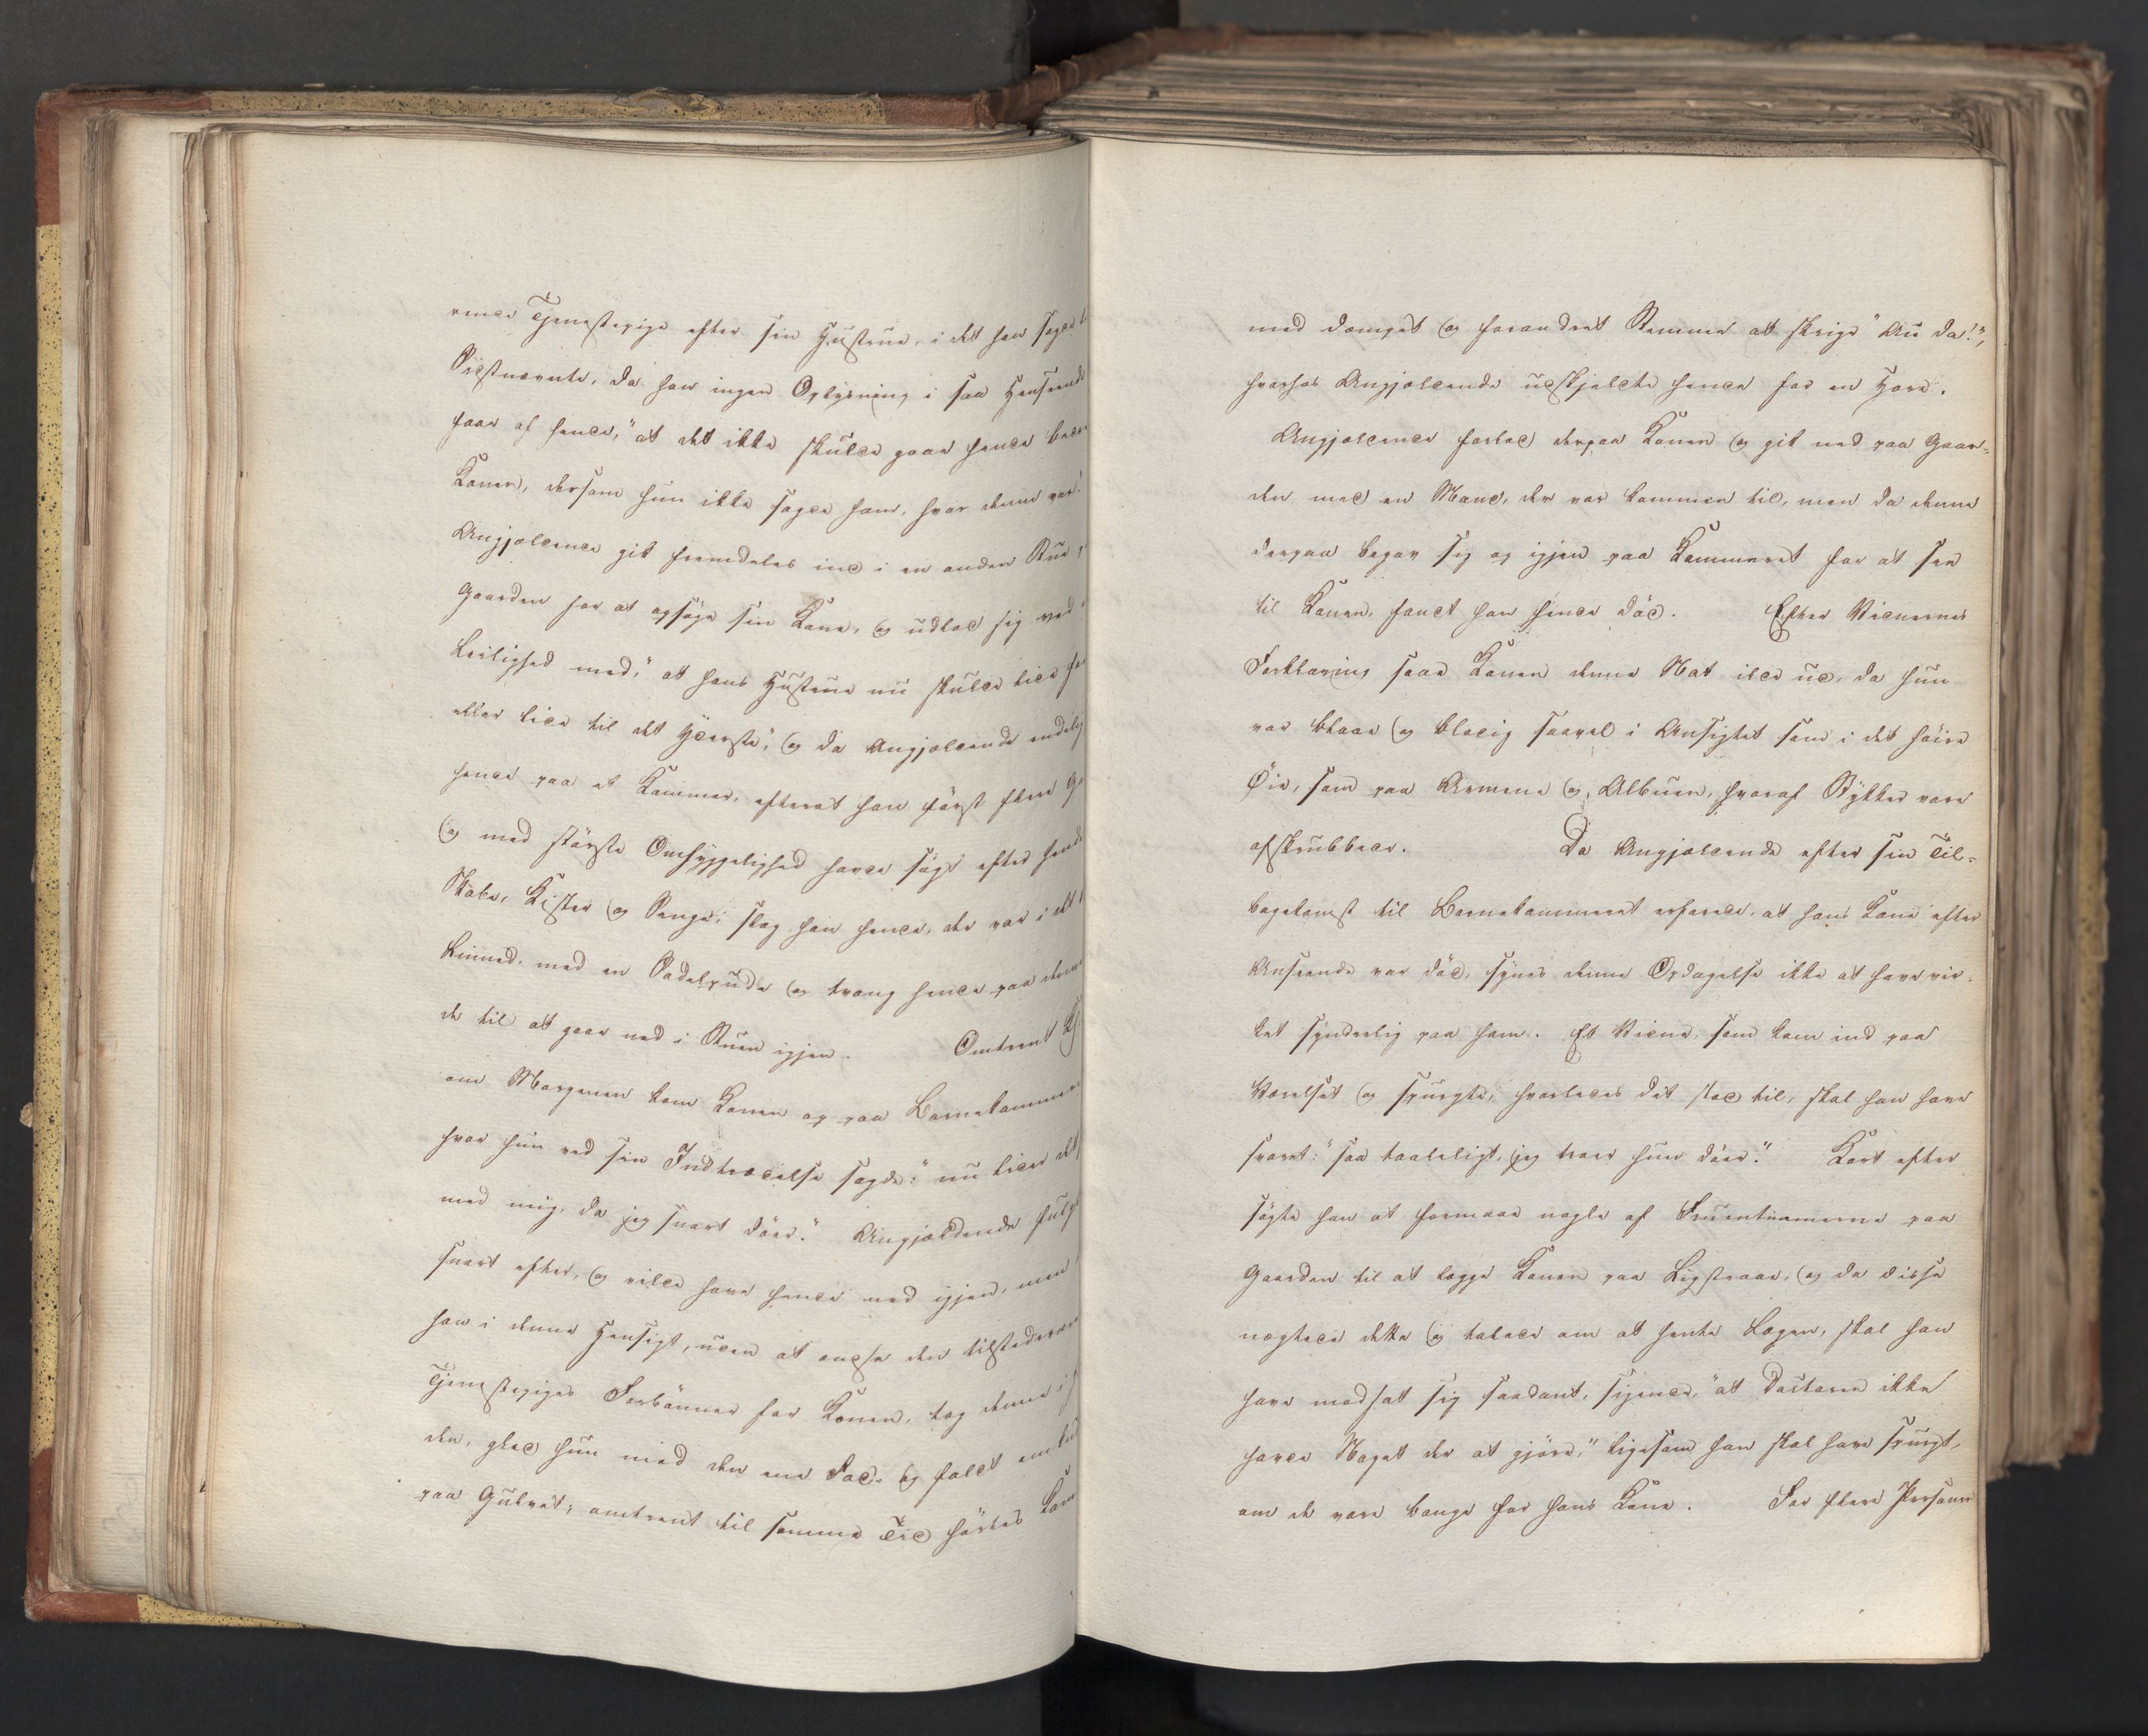 rende Tjenestepige efter sin Hustrue, i det han sagde t
Sidstnævnte, da han ingen Oplysning i saa Henseende
faar af hende, "at det ikke skulde gaae hende bedre
Konen, dersom hun ikke sagde ham, hvor denne var."
Angjældende gik fremdeles ind i en anden Stue p
Gaarden for at opsøge sin Kone, og udlod sig ved
Leilighed med, "at hans Hustrue nu skulde lide for
eller lide til det yderste", og da Angjældende endelig
hende paa et Kammer, efterat han først flere Ga
og med største Omhyggelighed havde søgt efter hende
Skabe, Kister og Senge, slog han hende, der var i det b
Linned, med en Sadelpude og tvang hende paa denne
de til at gaae ned i Stuen igjen. Omtrent Kl.
om Morgenen kom Konen op paa Børnekammeret
hvor hun ved sin Indtrædelse sagde: "nu lider det
med mig, da jeg snart döer." Angjældende fulgte
snart efter, og vilde have hende ned igjen, men
han i denne Hensigt, uden at ændse den tilstedevære
Tjenestepiges Forbönner for Konen, tog denne i
den, gled hun med den ene Fod og faldt omkuld
paa Gulvet; omtrent til samme Tid hørtes Kon
med dæmpet og forandret Stemme at skrige "Au da!",
hvorhos Angjældende udskjeldte hende for en Hore.
Angjældende forlod derpaa Konen og gik ned paa Gaar-
den med en Mand, der var kommen til, men da denne
derpaa begav sig op igjen paa Kammeret for at see
til Konen, fandt han hende död. Efter Vidnernes
Forklaring saae Konen denne Nat ilde ud, da hun
var blaae og blodig saavel i Ansigtet som i det høire
Øie, som paa Armene og Albuen, hvoraf Stykker vare
afskrubbede. Da Angjældende efter sin Til-
bagekomst til Børnekammeret erfarede, at hans Kone efter
Anseende var död, synes denne Opdagelse ikke at have vir-
ket synderlig paa ham. Et Vidne, som kom ind paa
Værelset og spurgte, hvorledes det stod til, skal han have
svaret: "saa taaleligt, jeg troer hun döer." Kort efter
søgte han at formaae nogle af Fruentimmerne paa
Gaarden til at lægge Konen paa Ligstraae, og da disse
nægtede dette og talede om at hente Lægen, skal han
have modsat sig saadant, sigende, "at Doctoren ikke
havde Noget der at gjøre," ligesom han skal have spurgt,
om de vare bange for hans Kone. For flere Personer